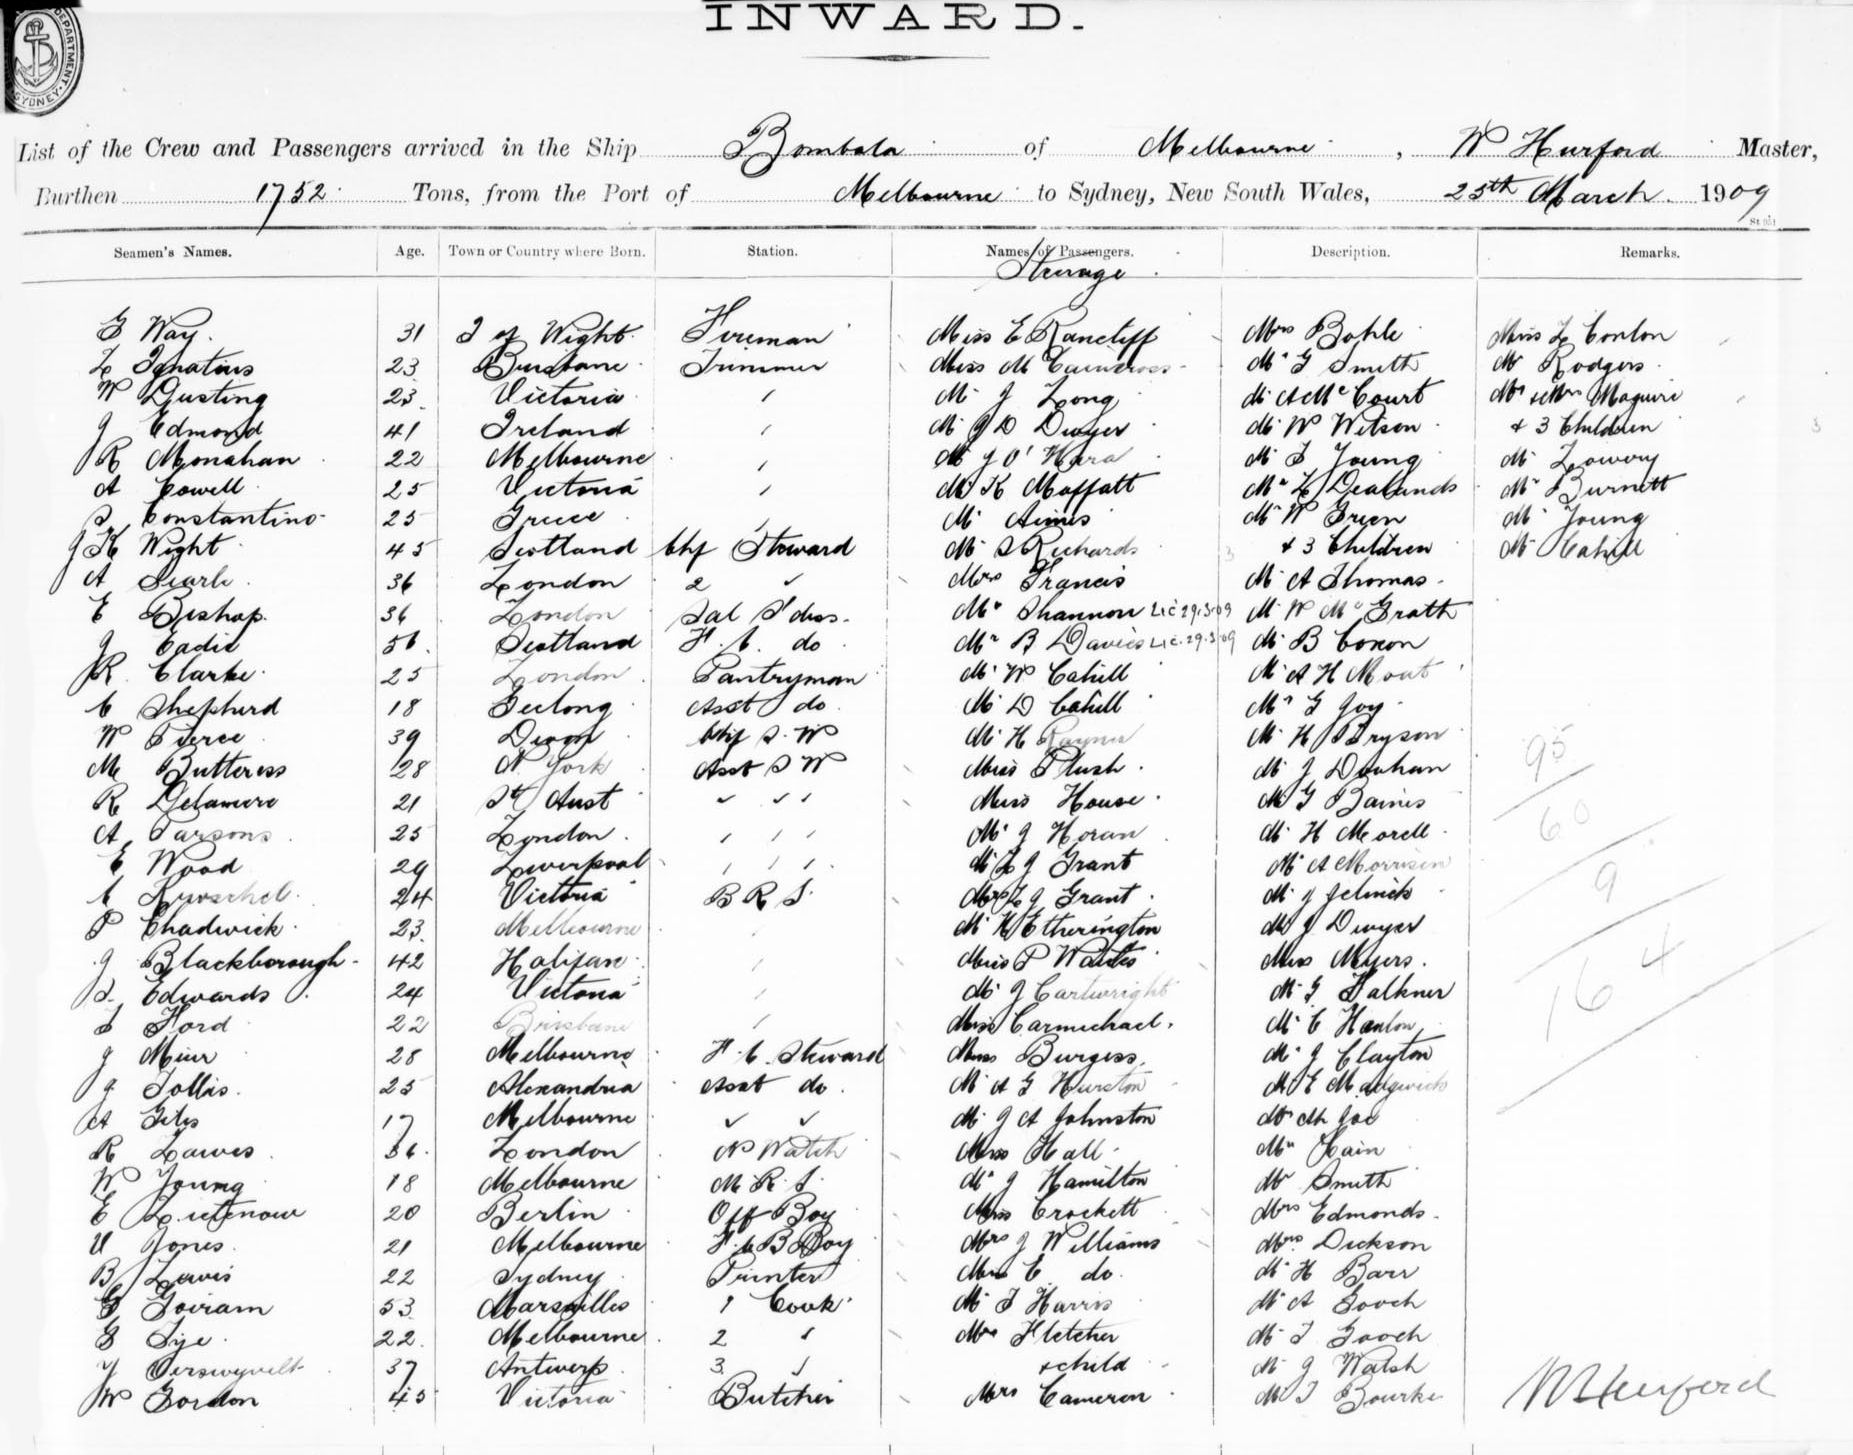 DEPARTMENT. SYDNEY.
INWARD.
List of the Crew and Passengers arrived in the Ship Bombala of Melbourne, W Hurford Master,
Burthen 1752 Tons, from the Port of Melbourne to Sydney, New South Wales, 25th March 1909
Seamen's Names. Age. Town or Country where Born. Station. Names of Passengers. Description. Remarks.
Steerage
G Way 31 I of Wight Fireman Miss E Rancliff Mrs Bohle Miss L Conlon
L Ignatius 23 Brisbane Trimmer Miss M Cairncross Mr G Smith Mr Rodgers
W Dusting 23 Victoria " Mr J Long Mr A McCourt Mr & Mrs Maguire
J Edmond 41 Ireland " Mr J D Dwyer Mr W Wilson & 3 Children
R Monahan 22 Melbourne " Mr J O'Hara Mr S Young Mr Lowery
A Cowell 25 Victoria " Mr K Moffatt Mr Dealands Mr Burnett
S Constantino 25 Greece " Mr Aimis Mr W Green Mr Young
J K Wight 45 Scotland Chf Steward Mr S Richards & 3 Children Mr Cahill
A Searle 36 London 2 " Mrs Francis Mr A Thomas
E Bishop 36 London Sal S'dess Mr Shannon Lic 29.3.09 Mr W McGrath
J Eadie 56 Scotland F. C. do Mr B Davies Lic. 29.3.09 Mr B Coxon
R Clarke 25 London Pantryman Mr W Cahill Mr A H Mout
C Shepherd 18 Geelong Asst do Mr D Cahill Mr G Joy
W Pierce 39 Devon Chf S. W Mr H Rayner Mr H Bryson
M Butteress 28 N York Asst S W Miss Plush Mr J Deehan 95
R Delamere 21 Sth Aust " " " Miss House Mr G Bainis
A Parsons 25 London " " " Mr J Horan Mr H Morell 60
E Wood 29 Liverpool " " " Mr L J Grant Mr A Morrison
C 24 Victoria B R S Mrs L J Grant Mr J Jelnick 9
P Chadwick 23 Melbourne " Mr H Etherington Mr J Dwyer
J Blackborough 42 Halifax " Miss P Waites Miss Myers 4
S Edwards 24 Victoria " Mr J Cartwright Mr G Falkner 16
S Ford 22 Brisbane " Miss Carmichael Mr C Hanlon
J Muir 28 Melbourne F. C. Steward Miss Burgess Mr J Clayton
J Tollis 25 Alexandria Asst do Mr A G Hurston Mr E Madgwick
A Giles 17 Melbourne " " Mr J A Johnston Mr Ah Joe
R Lawes 36 London N Watch Miss Hall Mr Hain
W Young 18 Melbourne M R S Mr J Hamilton Mr Smith
E Lietenow 20 Berlin Off Boy Miss Crockett Mrs Edmonds
U Jones 21 Melbourne F. C B Boy Mrs J Williams Mrs Dickson
B Lewis 22 Sydney Printer Miss E do Mr H Barr
G Goiram 53 Marseilles 1 Cook Mr J Harris Mr A Gooch
G Tye 22 Melbourne 2 " Mrs Fletcher Mr T Gooch
J Verswyvelt 37 Antwerp 3 " & child Mr J Walsh
W Gordon 45 Victoria Butcher Mrs Cameron Mr T Bourke W Hurford